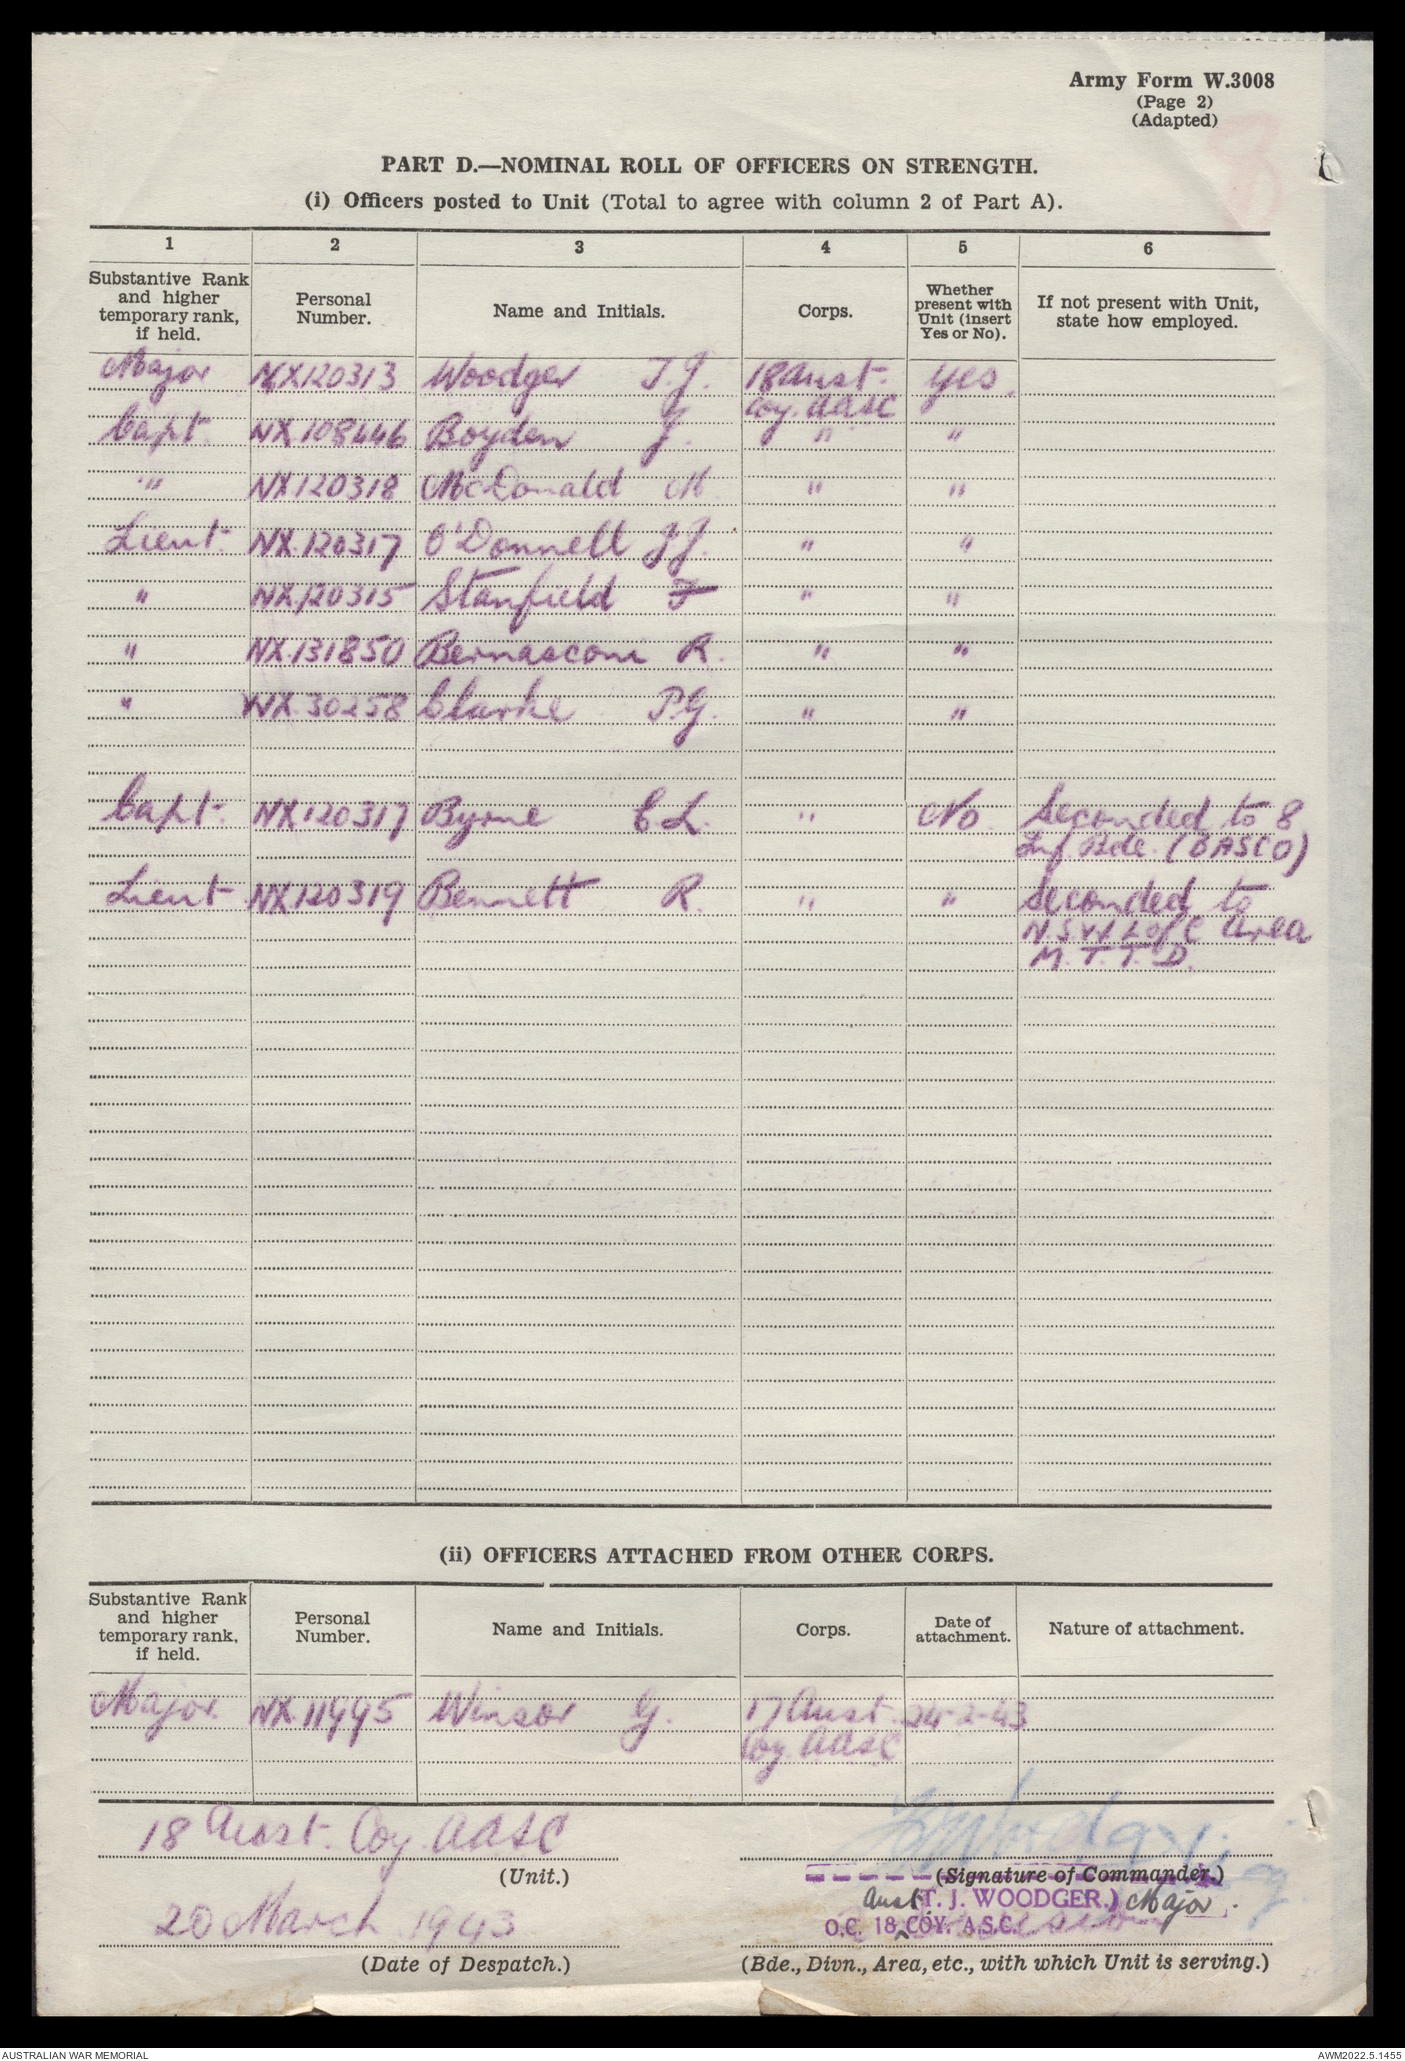 Army Form W.3008
(Page 2)
(Adapted)
PART D.—NOMINAL ROLL OF OFFICERS ON STRENGTH.
(i) Officers posted to Unit (Total to agree with column 2 of Part A).
1 2 3 4 5 6
Substantive Rank and higher temporary rank, if held. Personal Number. Name and Initials. Corps. Whether present with Unit (insert Yes or No). If not present with Unit, state how employed.
Major NX120313 Woodger T.J. 18 Aust. Yes.
Coy. AASC
Capt. NX.108446 Boyden J. " "
" NX.120318 McDonald M. " "
Lieut. NX.120317 O'Donnell J.J. " "
" NX.120315 Stanfield F " "
" NX.131850 Bernasconi R. " "
" WX.30258 Clarke P.G. " "
Capt. NX120317 Byrne C L. " No Seconded to 8
Inf. Bde. (BASCO)
Lieut NX120319 Bennett R. " " Seconded to
N.S.W. L of C Area
M.T.T.D.
(ii) OFFICERS ATTACHED FROM OTHER CORPS.
Substantive Rank and higher temporary rank, if held. Personal Number. Name and Initials. Corps. Date of attachment. Nature of attachment.
Major NX.11995 Winsor G. 17 Aust. 24-2-43
Coy. AASC
18 Aust. Coy. AASC
(Unit.) (Signature of Commander.)
Aust (T. J. WOODGER.) Major.
20 March 1943 O.C. 18 COY. A.S.C.
(Date of Despatch.) (Bde., Divn., Area, etc., with which Unit is serving.)
AUSTRALIAN WAR MEMORIAL AWM2022.5.1455